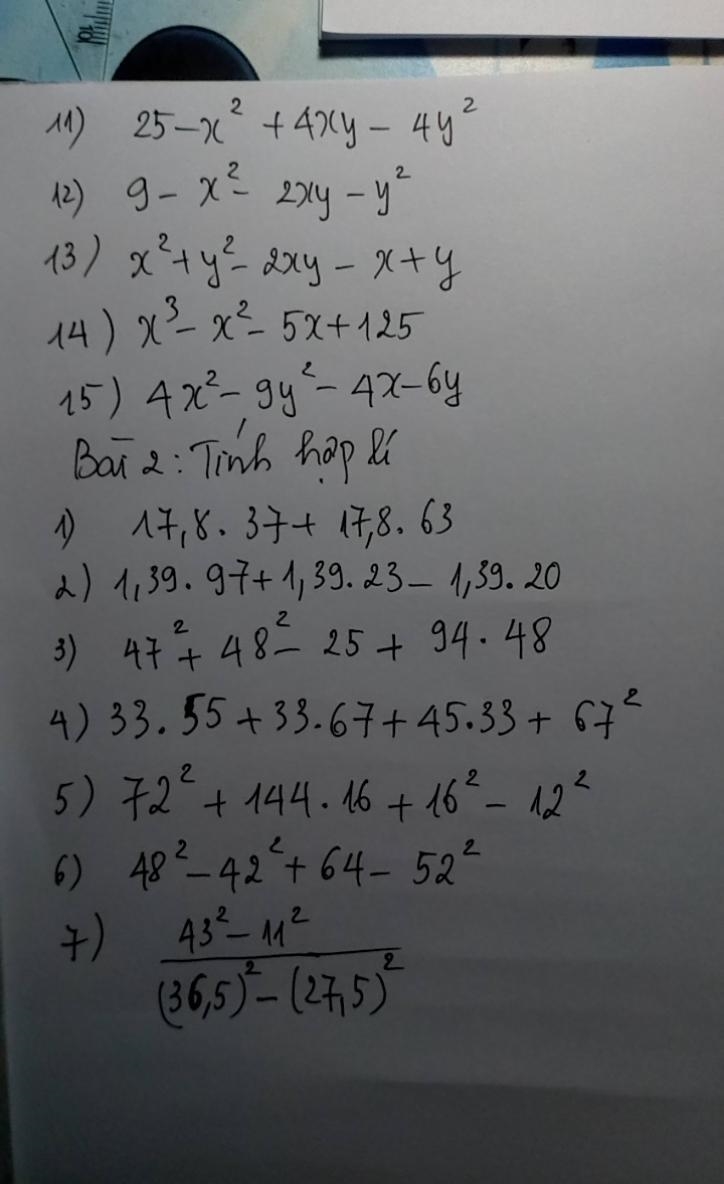 10
11) 25 - x² + 4xy - 4y²
12) 9 - x² - 2xy - y²
13) x² + y² - 2xy - x + y
14) x³ - x² - 5x + 125
15) 4x² - 9y² - 4x - 6y
Bài 2: Tính hợp lí
1) 17,8 . 37 + 17,8 . 63
2) 1,39 . 97 + 1,39 . 23 - 1,39 . 20
3) 47² + 48² - 25 + 94 . 48
4) 33 . 55 + 33 . 67 + 45 . 33 + 67²
5) 72² + 144 . 16 + 16² - 12²
6) 48² - 42² + 64 - 52²
7) (43² - 11²) / ((36,5)² - (27,5)²)